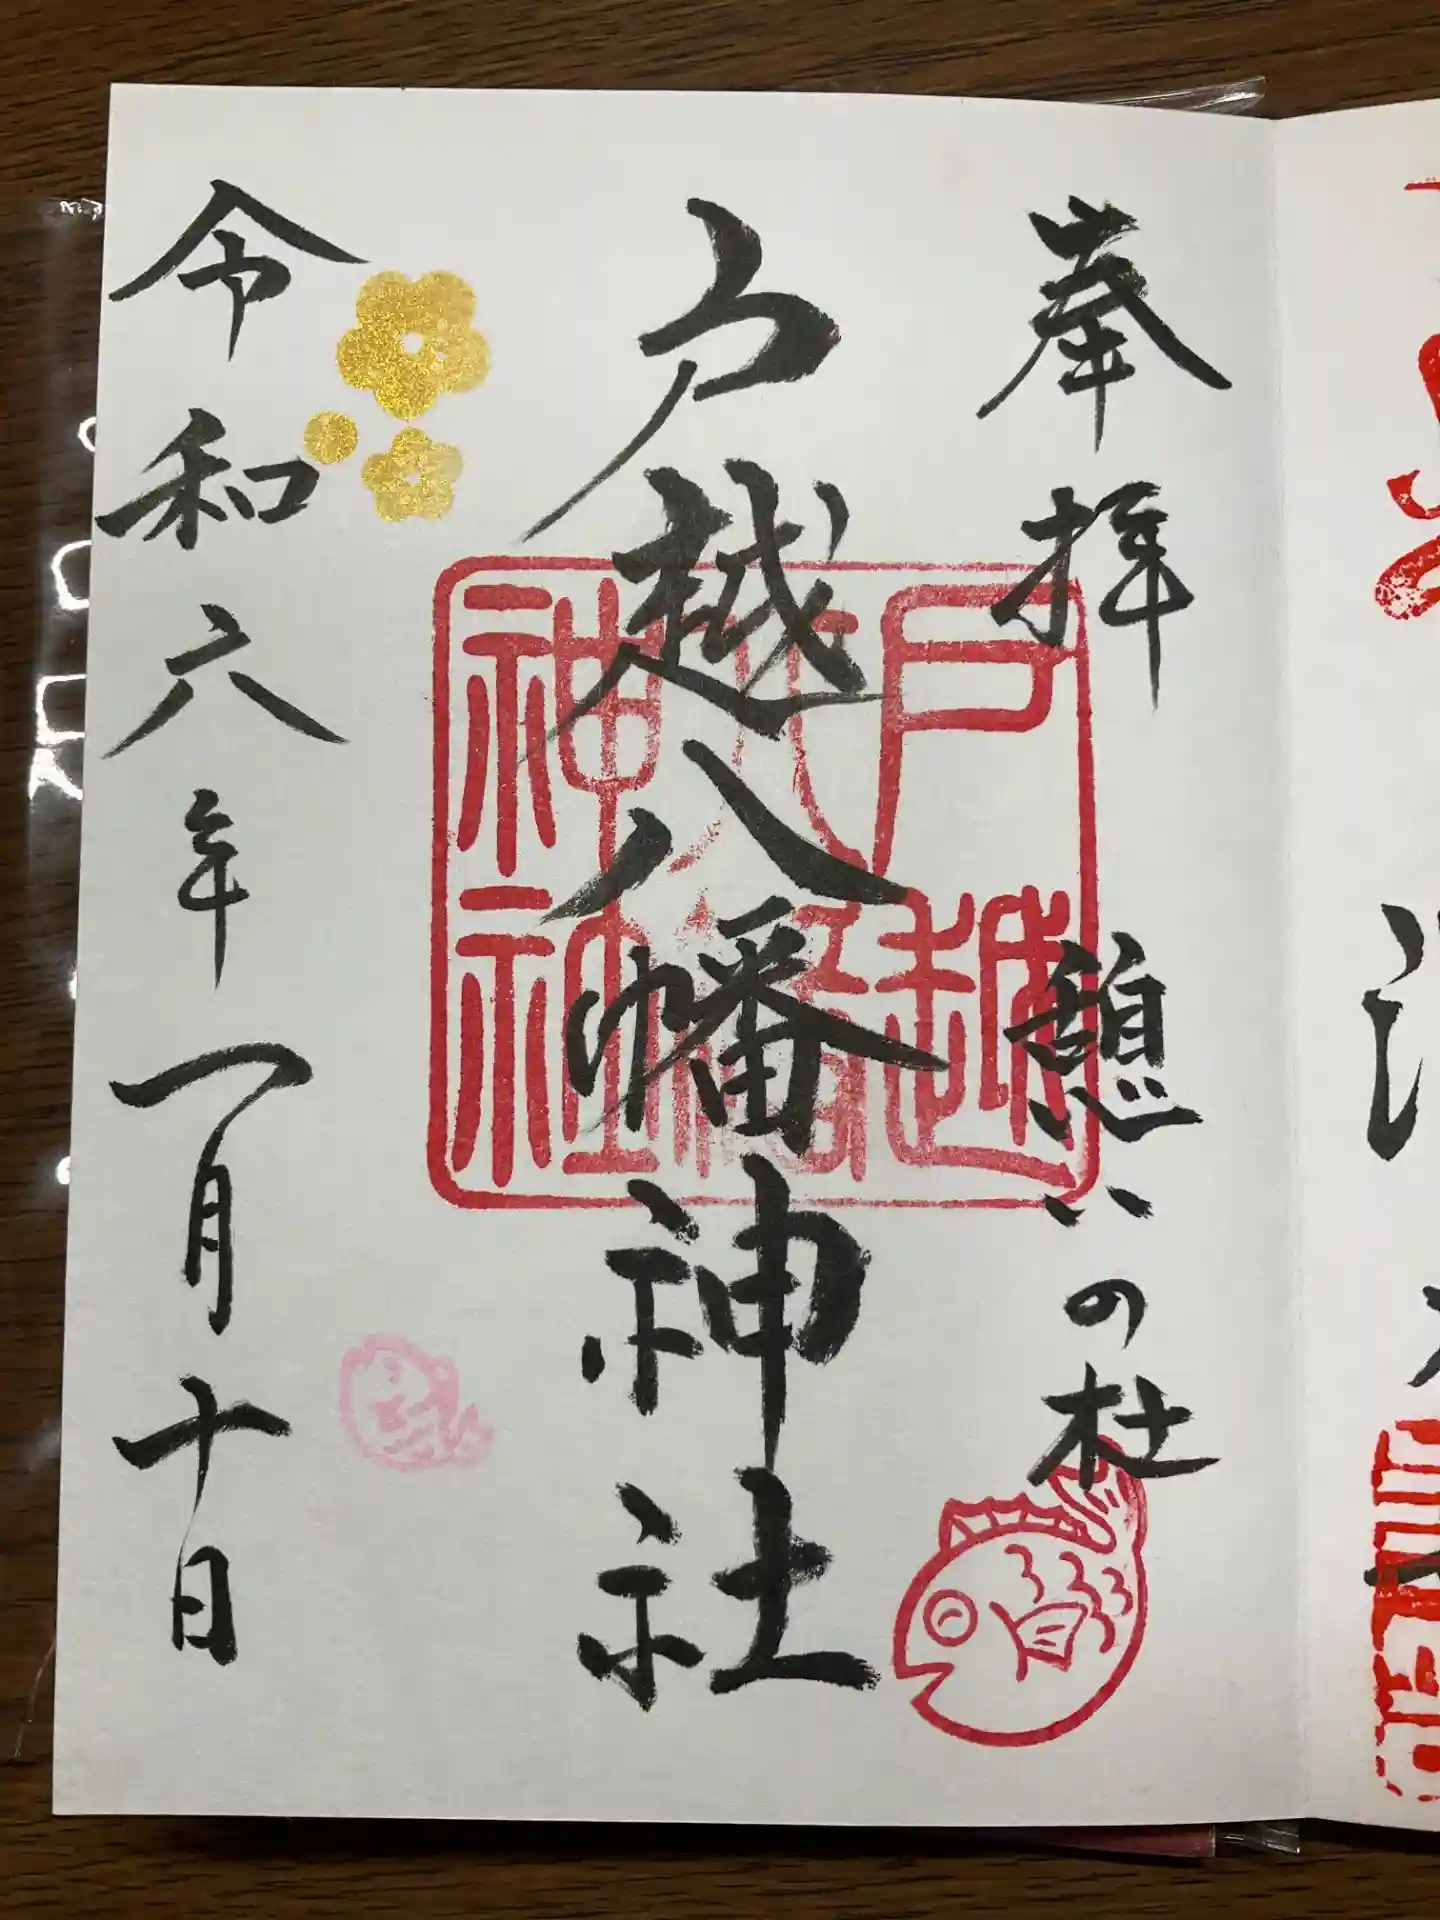 奉拝 憩いの杜
戸越八幡神社
令和六年一月十日
戸越
八幡
神社